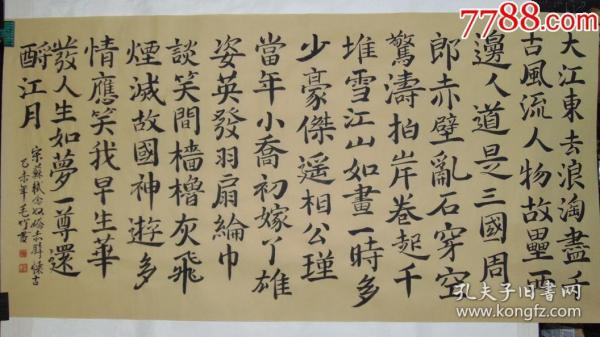 大江東去浪淘盡千
古風流人物故壘西
邊人道是三國周
郎赤壁亂石穿空
驚濤拍岸卷起千
堆雪江山如畫一時多
少豪傑遥相公瑾
當年小喬初嫁了雄
姿英發羽扇綸巾
談笑間檣櫓灰飛
煙滅故國神遊多
情應笑我早生華
發人生如夢一尊還
酹江月
宋蘇軾念奴嬌赤壁懷古
乙未年毛竹書
7788.com
孔夫子旧书网
www.kongfz.com